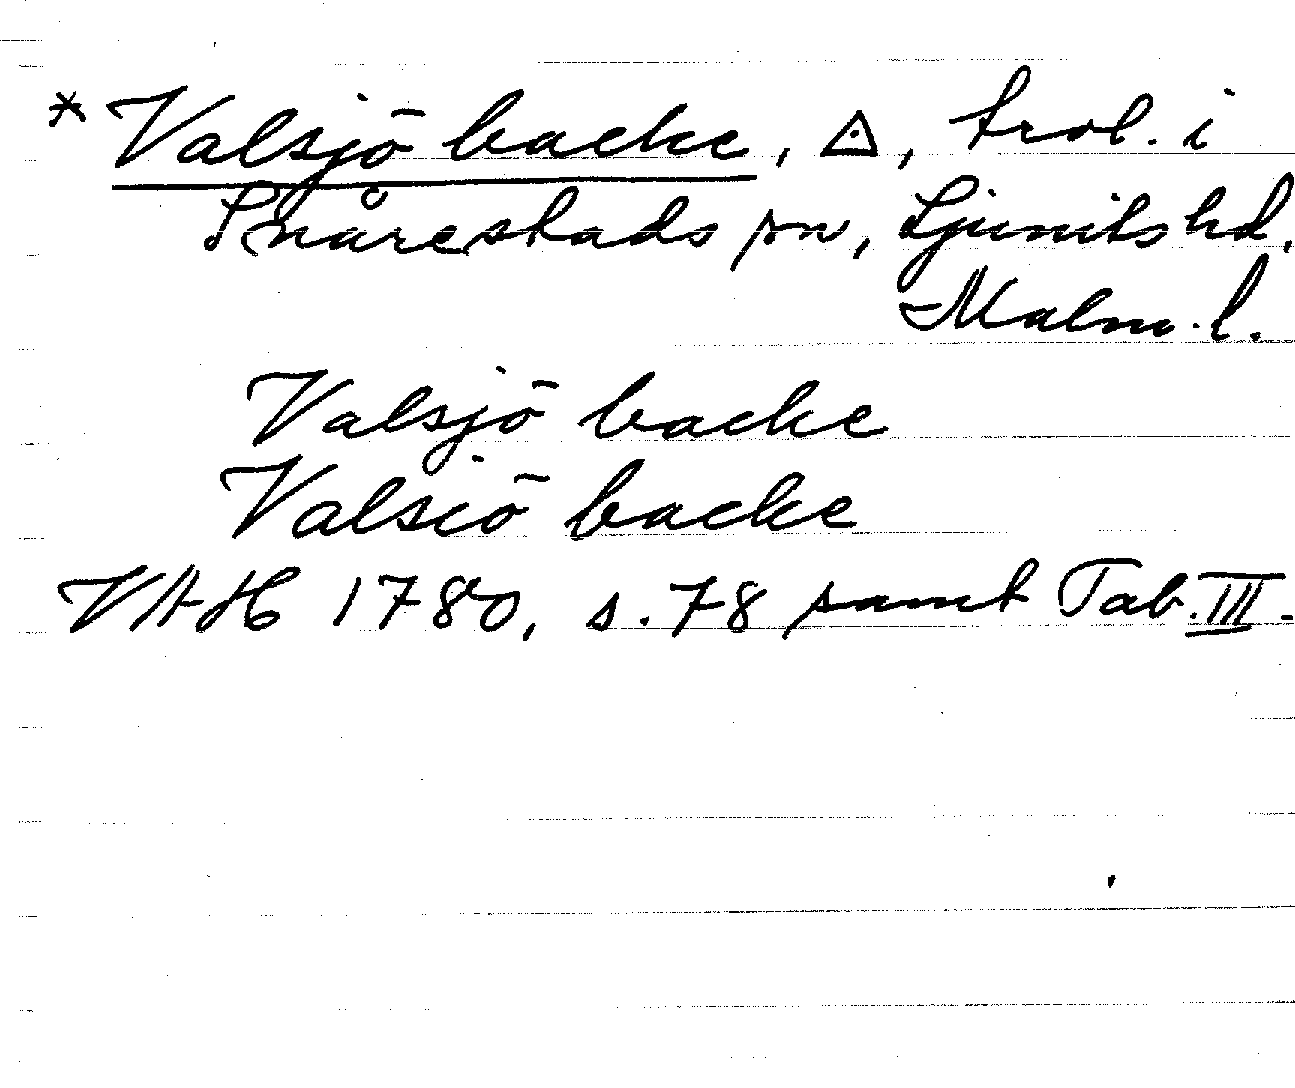 * Valsjö backe, △, trol. i
Snårestads sn, Ljunits hd,
Malm. l.
Valsjö backe
Valsiö backe
VAH 1780, s. 78 samt Tab. III.